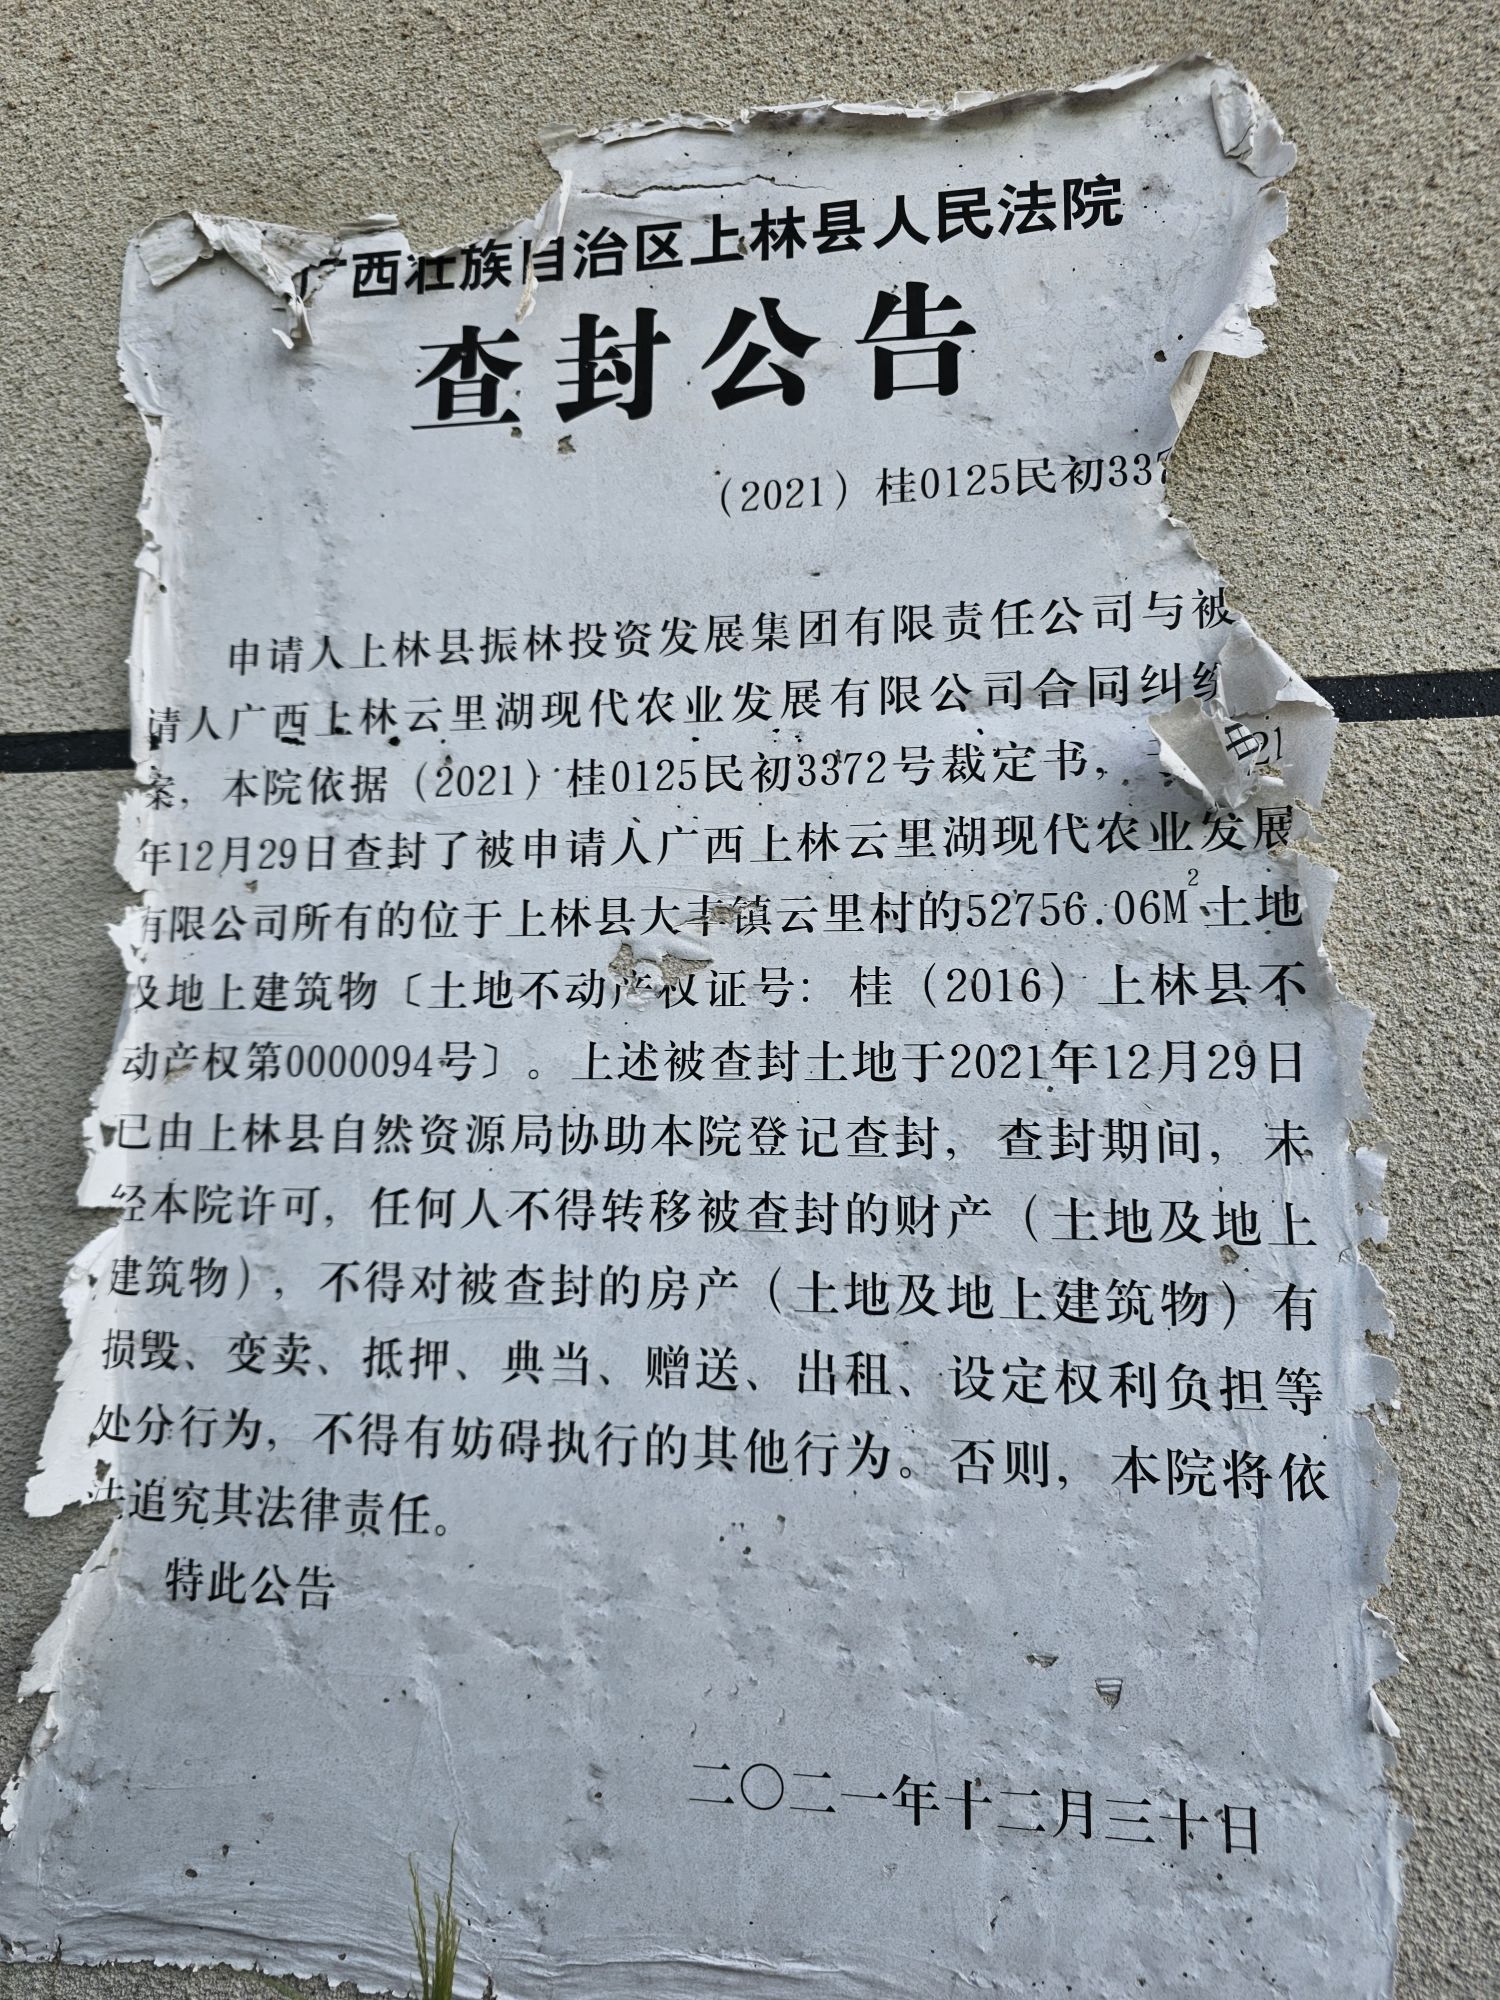 广西壮族自治区上林县人民法院
查封公告
（2021）桂0125民初337
申请人上林县振林投资发展集团有限责任公司与被
请人广西上林云里湖现代农业发展有限公司合同纠纷
案，本院依据（2021）桂0125民初3372号裁定书，
年12月29日查封了被申请人广西上林云里湖现代农业发展
有限公司所有的位于上林县大丰镇云里村的52756.06M²土地
及地上建筑物〔土地不动产权证号：桂（2016）上林县不
动产权第0000094号〕。上述被查封土地于2021年12月29日
已由上林县自然资源局协助本院登记查封，查封期间，未
经本院许可，任何人不得转移被查封的财产（土地及地上
建筑物），不得对被查封的房产（土地及地上建筑物）有
损毁、变卖、抵押、典当、赠送、出租、设定权利负担等
处分行为，不得有妨碍执行的其他行为。否则，本院将依
法追究其法律责任。
特此公告
二〇二一年十二月三十日